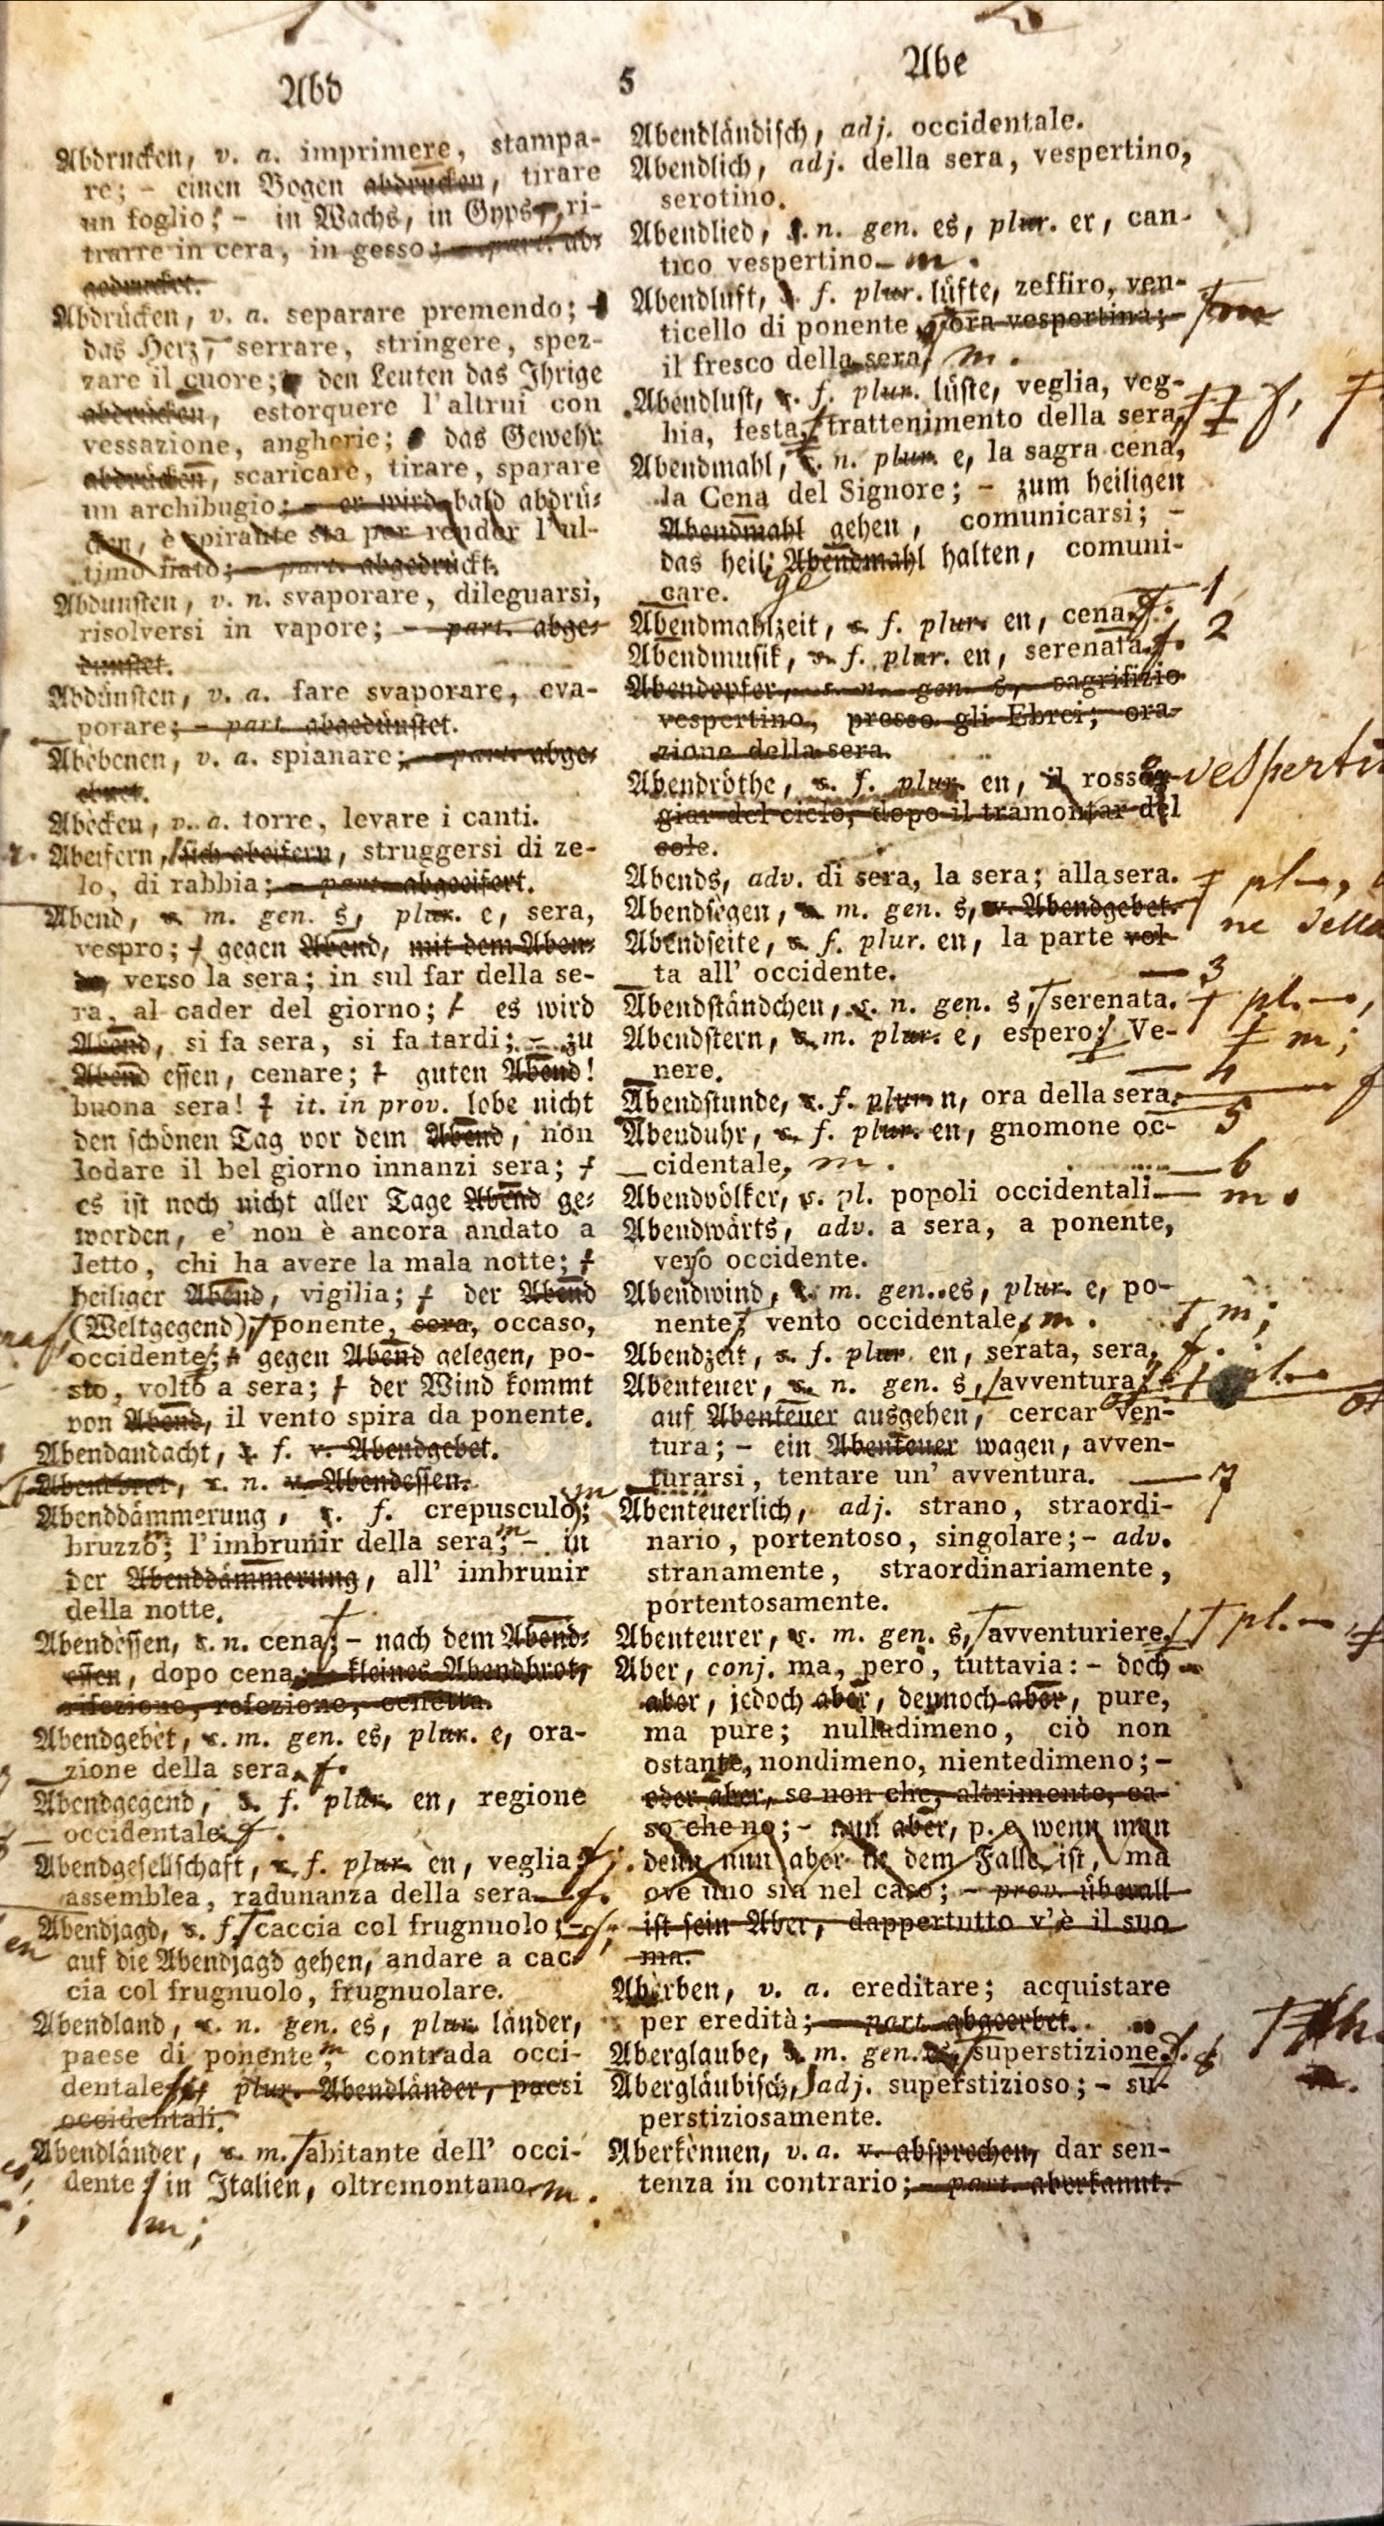 Abd
5
Abe
Abdrucken, v. a. imprimere, stampa-
re; - einen Bogen abdrucken, tirare
un foglio; - in Wachs, in Gyps, ri-
trarre in cera, in gesso; - part. ab-
gedrucket.
Abdrücken, v. a. separare premendo; -
das Herz, serrare, stringere, spez-
zare il cuore; den Leuten das Ihrige
abdrücken, estorquere l'altrui con
vessazione, angherie; das Gewehr
abdrücken, scaricare, tirare, sparare
un archibugio; - er wird bald abdrü-
cken, è spirante sta per render l'ul-
timo fiato; - part. abgedrückt.
Abdunsten, v. n. svaporare, dileguarsi,
risolversi in vapore; - part. abge-
dunstet.
Abdünsten, v. a. fare svaporare, eva-
porare; - part. abgedünstet.
Abèbenen, v. a. spianare; - part. abge-
ebnet.
Abècken, v. a. torre, levare i canti.
Abeifern, sich abeifern, struggersi di ze-
lo, di rabbia; - part. abgeeifert.
Abend, s. m. gen. s, plur. e, sera,
vespro; gegen Abend, mit dem Aben-
de, verso la sera; in sul far della se-
ra, al cader del giorno; es wird
Abend, si fa sera, si fa tardi; - zu
Abend essen, cenare; guten Abend!
buona sera! it. in prov. lobe nicht
den schönen Tag vor dem Abend, non
lodare il bel giorno innanzi sera;
es ist noch nicht aller Tage Abend ge-
worden, e' non è ancora andato a
letto, chi ha avere la mala notte;
heiliger Abend, vigilia; der Abend
(Weltgegend), ponente, sera, occaso,
occidente; gegen Abend gelegen, po-
sto, volto a sera; der Wind kommt
von Abend, il vento spira da ponente.
Abendandacht, s. f. v. Abendgebet.
Abendbrot, s. n. v. Abendessen.
Abenddämmerung, s. f. crepusculo; m
bruzzo; m l'imbrunir della sera; m - in
der Abenddämmerung, all' imbrunir
della notte.
Abendèssen, s. n. cena; - nach dem Abend-
essen, dopo cena; - kleines Abendbrot,
rifezione, refezione, cenetta.
Abendgebèt, s. m. gen. es, plur. e, ora-
zione della sera, f.
Abendgegend, s. f. plur. en, regione
occidentale f.
Abendgesellschaft, s. f. plur. en, veglia f;
assemblea, radunanza della sera f.
Abendjagd, s. f. caccia col frugnuolo; f;
auf die Abendjagd gehen, andare a cac-
cia col frugnuolo, frugnuolare.
en
Abendland, s. n. gen. es, plur. länder,
paese di ponente, m contrada occi-
dentale f; plur. Abendländer, paesi
occidentali.
Abendländer, s. m. abitante dell' occi-
dente; in Italien, oltremontano m.
m;
Abendländisch, adj. occidentale.
Abendlich, adj. della sera, vespertino,
serotino.
Abendlied, s. n. gen. es, plur. er, can-
tico vespertino m.
Abendluft, s. f. plur. lüfte, zeffiro, ven-
ticello di ponente, ora vespertina; - m
il fresco della sera, m.
Abendlust, s. f. plur. lüste, veglia, veg-
hia, festa, trattenimento della sera, f,
Abendmahl, s. n. plur. e, la sagra cena,
la Cena del Signore; - zum heiligen
Abendmahl gehen, comunicarsi; -
das heil. ge Abendmahl halten, comuni-
care.
Abendmahlzeit, s. f. plur. en, cena f. 1
Abendmusik, s. f. plur. en, serenata f. 2
Abendopfer, s. n. gen. s, sagrifizio
vespertino, presso gli Ebrei; ora-
zione della sera.
Abendröthe, s. f. plur. en, il rosseg-
giar del cielo, dopo il tramontar del
sole.
Abends, adv. di sera, la sera; alla sera.
Abendsègen, s. m. gen. s, v. Abendgebet.
Abendseite, s. f. plur. en, la parte vol-
ta all' occidente. 3
Abendständchen, s. n. gen. s, serenata. pl. -,
Abendstern, s. m. plur. e, espero; Ve- m;
nere. 4
Abendstunde, s. f. plur. n, ora della sera. f
Abenduhr, s. f. plur. en, gnomone oc- 5
cidentale, m.
6
Abendvölker, s. pl. popoli occidentali m.
Abendwärts, adv. a sera, a ponente,
verso occidente.
Abendwind, s. m. gen. es, plur. e, po-
nente, vento occidentale, m. m;
Abendzeit, s. f. plur. en, serata, sera, f.
Abenteuer, s. n. gen. s, avventura; pl. -
auf Abenteuer ausgehen, cercar ven-
tura; - ein Abenteuer wagen, avven-
turarsi, tentare un' avventura. 7
Abenteuerlich, adj. strano, straordi-
nario, portentoso, singolare; - adv.
stranamente, straordinariamente,
portentosamente.
Abenteurer, s. m. gen. s, avventuriere. pl. -,
Aber, conj. ma, però, tuttavia: - doch
aber, jedoch aber, dennoch aber, pure,
ma pure; nulladimeno, ciò non
ostante, nondimeno, nientedimeno; -
oder aber, se non che, altrimente, ca-
so che no; - nun aber, p. e. wenn man
denn nun aber in dem Falle ist, ma
ove uno sia nel caso; - prov. überall
ist sein Aber, dappertutto v'è il suo
ma.
Abèrben, v. a. ereditare; acquistare
per eredità; - part. abgeerbet.
Aberglaube, s. m. gen. superstizione f. 8
Abergläubisch, adj. superstizioso; - su-
perstiziosamente.
Aberkènnen, v. a. v. absprechen, dar sen-
tenza in contrario; - part. aberkannt.